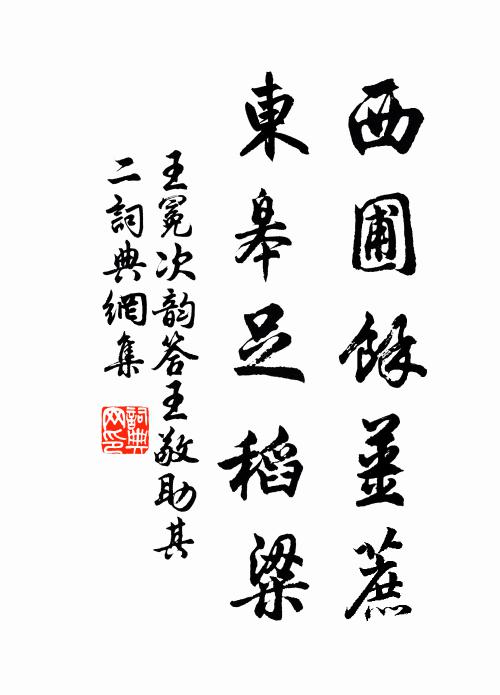 西圃餘薑蔗
東皋足稻粱
王冕次韵答王敬助其
二詞典網集
詞典
网印